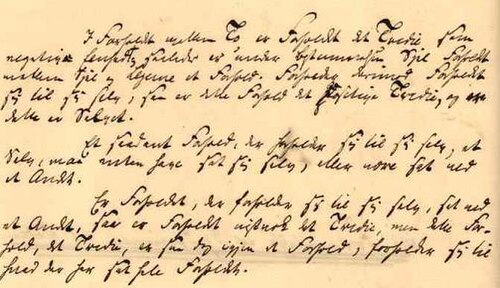 I Forholdet mellem To er Forholdet det Tredie som
negativ Eenhed, saaledes er under Bestemmelsen Sjel Forholdet
mellem Sjel og Legeme et Forhold. Forholder derimod Forholdet
sig til sig selv, saa er dette Forhold det positive Tredie, og
dette er Selvet.
Et saadant Forhold, der forholder sig til sig selv, et
Selv, maa enten have sat sig selv, eller være sat ved
et Andet.
Er Forholdet, der forholder sig til sig selv, sat ved
et Andet, saa er Forholdet vistnok det Tredie, men dette For-
hold, det Tredie, er saa dog igjen et Forhold, forholder sig til
hvad der har sat hele Forholdet.